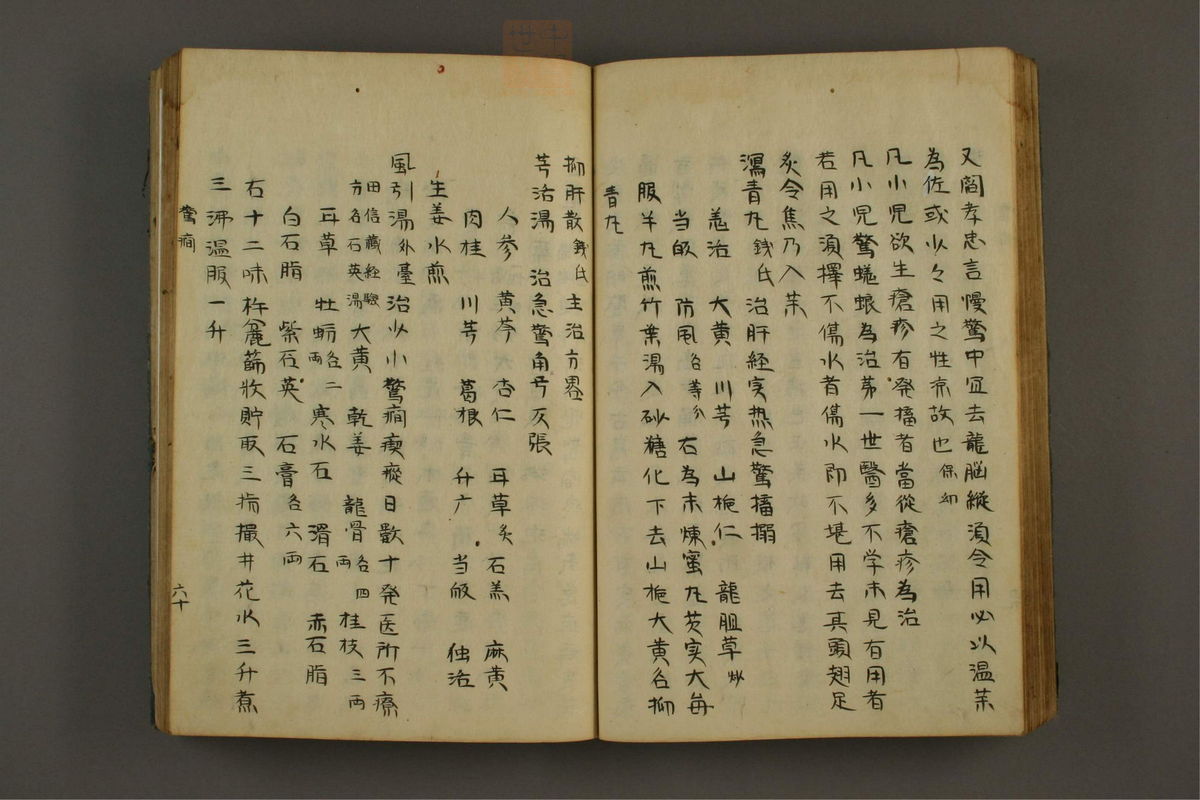 又閻孝忠言慢驚中宜去龍脳縦須令用必以温茉
為佐或少々用之性凉故也 保幼
凡小児欲生瘡疹有発搐者當従瘡疹為治
凡小児驚蜣蜋為治苐一世醫多不学未見有用者
若用之須擇不傷水者傷水即不堪用去其頭翅足
炙令焦乃入茉
瀉青丸 銭氏 治肝経实热急驚搐搦
羌活 大黄 川芎 山梔仁 龍胆草 炒
当皈 防風 各等分 右為末煉蜜丸芡实大毎
服半丸煎竹葉湯入砂糖化下去山梔大黄名抑
青丸
抑肝散 銭氏 主治方畧
芎活湯 治急驚角弓反張
人参 黄芩 杏仁 耳草炙 石羔 麻黄
肉桂 川芎 葛根 升广 当皈 独活
生姜水煎
風引湯 外臺 治少小驚癇瘈瘲日数十発医所不療
田信蔵経験
方名石英湯 大黄 乾姜 龍骨 各四両 桂枝 三両
耳草 牡蛎 各二両 寒水石 滑石 赤石脂
白石脂 紫石英 石膏 各六両
右十二味杵麄篩收貯取三指撮井花水三升煮
三沸温服一升
驚癇
六十